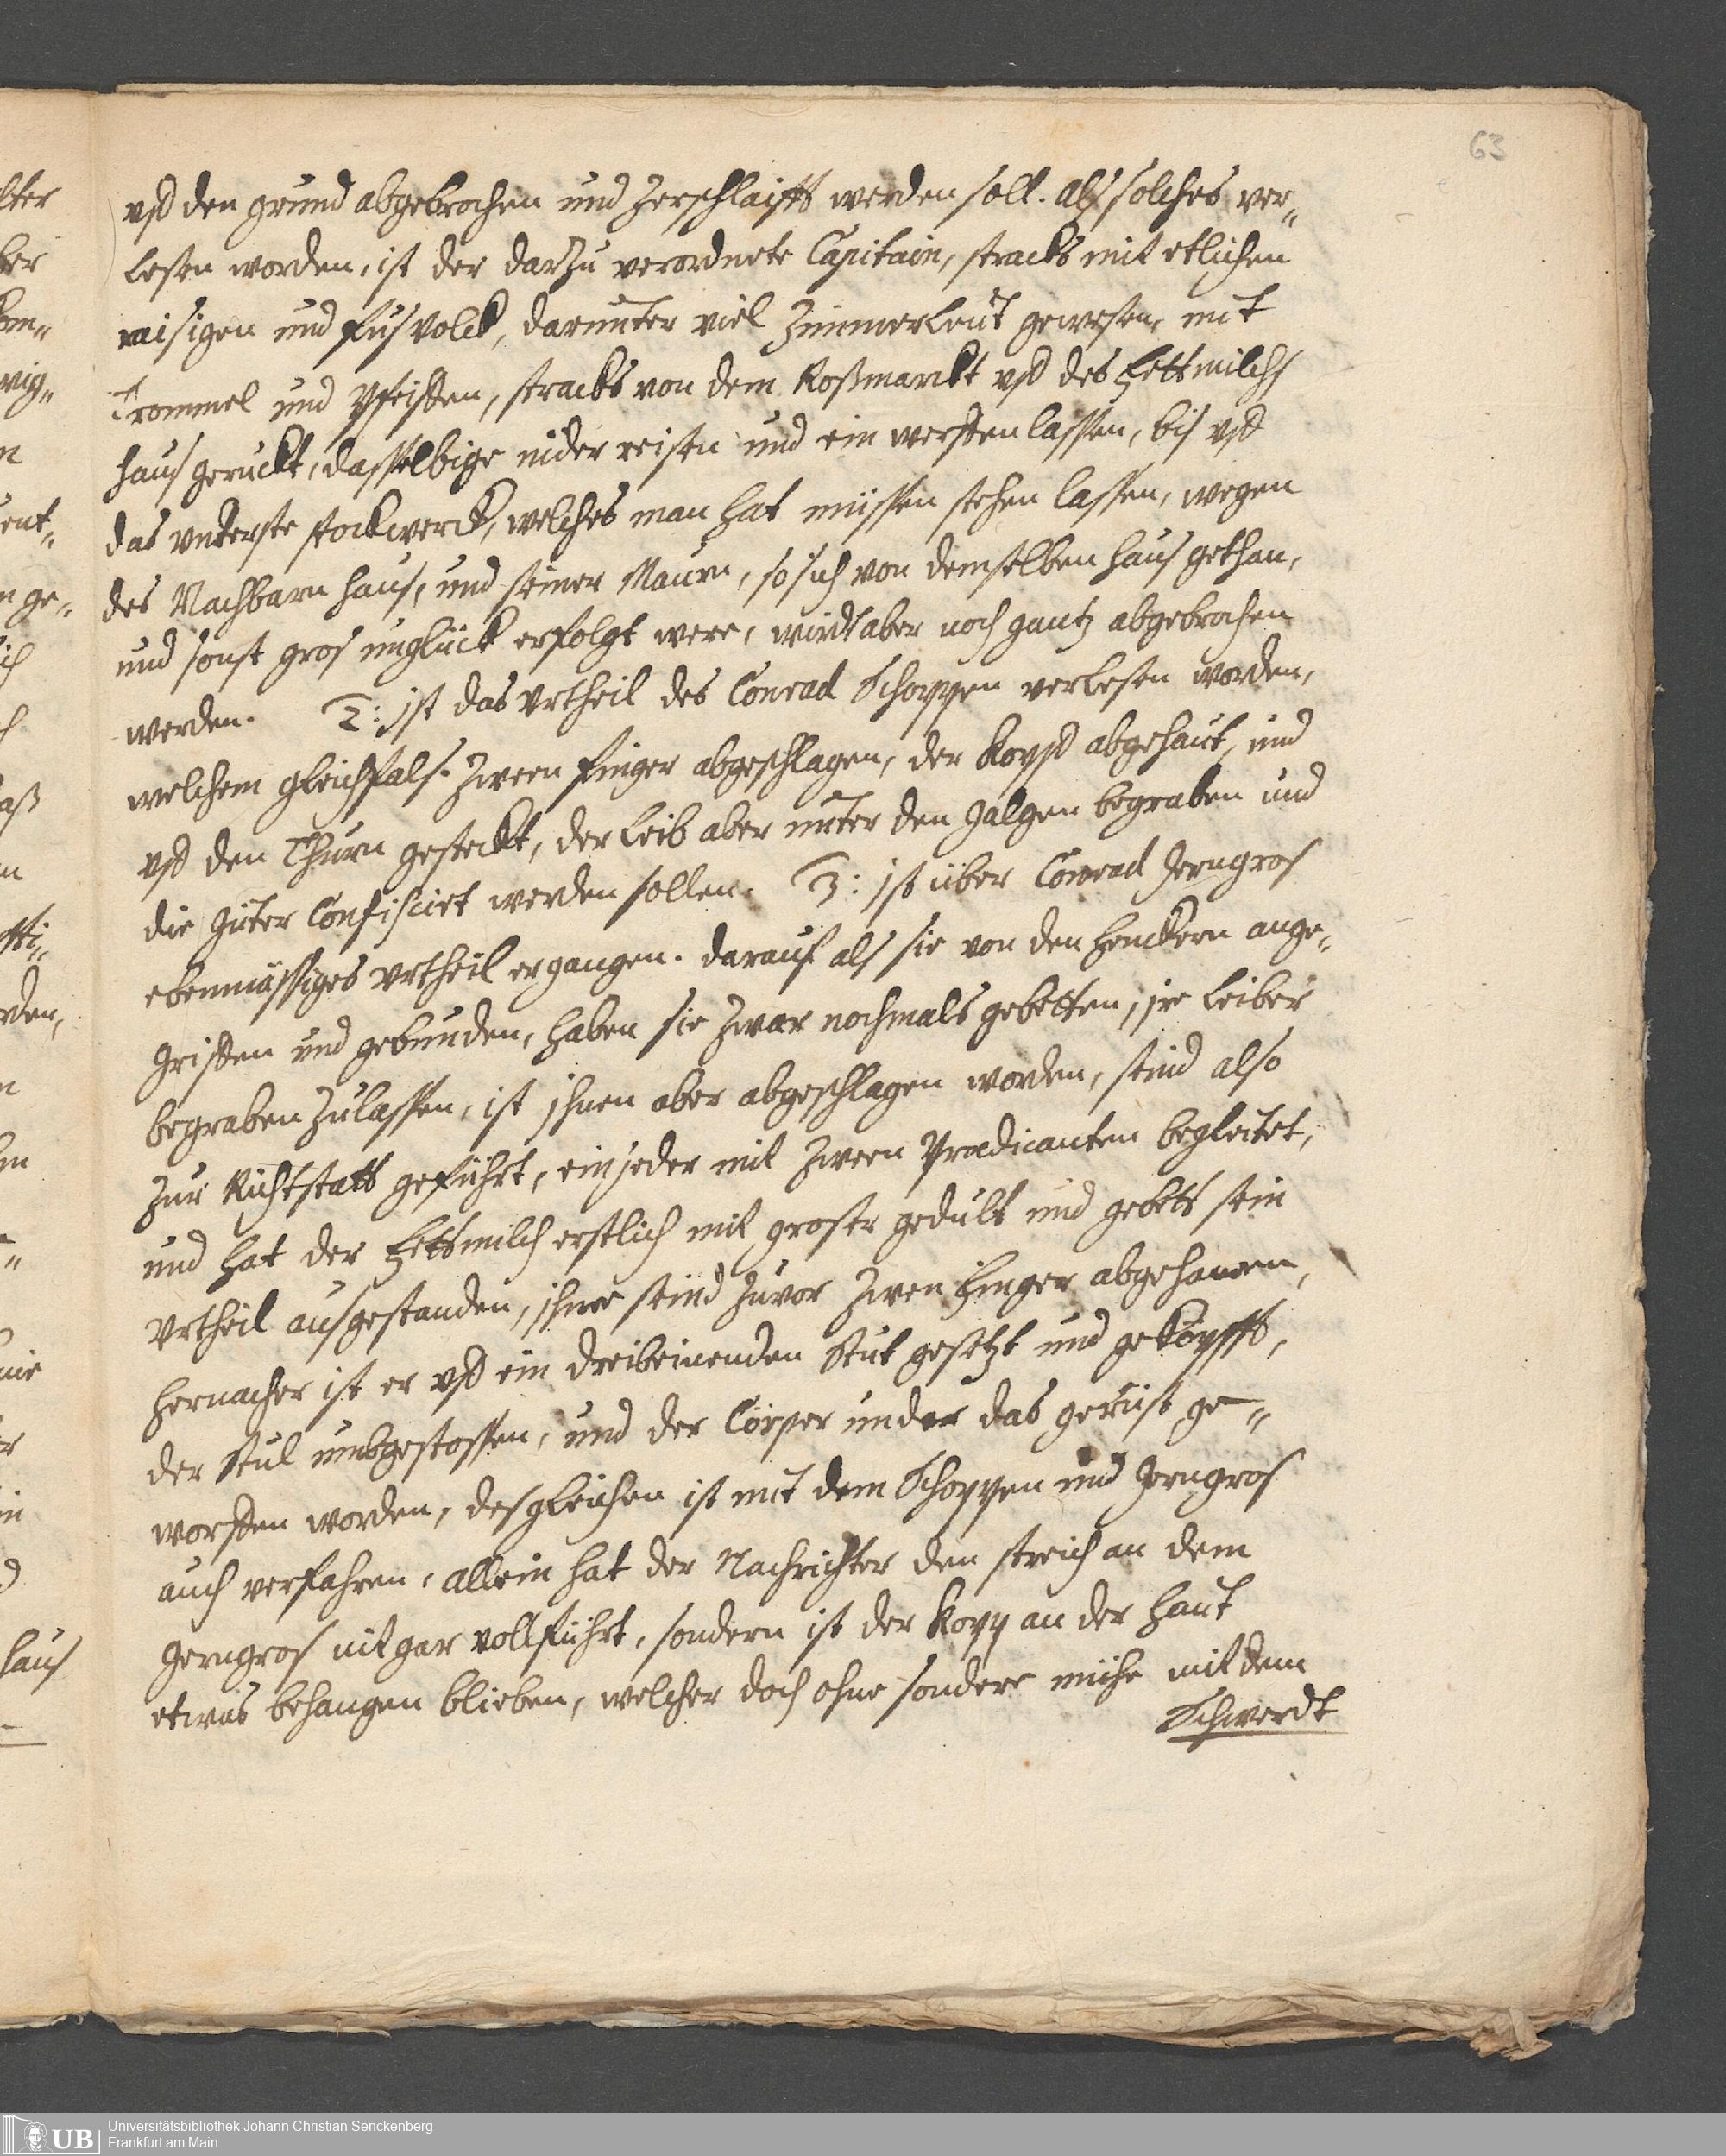 63
vff den grund abgebrochen und zerschlaifft werden soll. Als solches ver„
lesen worden, ist der darzu verordnete Capitain, stracks mit etlichen
raisigen und fusvolck, darunter viel Zimmerleut gewesen, mit
Trommel und Pfeiffen, stracks von dem Roßmarckt vff des Fettmilchs
haus geruckt, dasselbige nider reisen und ein werffen lassen, bis vff
das vnterste stockwerck, welches man hat müssen stehen lassen, wegen
des Nachbarn haus, und seiner Maurn, so sich von demselben haus gethan,
und sonst gros unglück erfolgt were, wirdt aber noch gantz abgebrochen
werden. 2: ist das Vrtheil des Conrad Schoppen verlesen worden,
welchem gleichfals zween finger abgeschlagen, der Kopff abgehaut, und
vff den Thurn gesteckt, der Leib aber unter den Galgen begraben und
die Güter Confisciret werden sollen. 3: ist über Conrad Gerngros
ebenmässiges Vrtheil ergangen. Darauf als sie von den Henckern ange„
griffen und gebunden, haben sie zwar nochmals gebetten, ire Leiber
begraben zulassen, ist ihnen aber abgeschlagen worden, seind also
zur Richtstatt geführt, ein jeder mit zween Prædicanten begleitet,
und hat der Fettmilch erstlich mit groser gedult und gebett sein
Vrtheil ausgestanden, ihme seind zuvor zwen Finger abgehawen,
hernacher ist er vff ein dreibeinenden Stul gesetzt und geköpfft,
der Stul umbgestossen, und der Cörper under das gerüst ge„
worffen worden, desgleichen ist mit dem Schoppen und Gerngros
auch verfahren, allein hat der Nachrichter den streich an dem
Gerngros nit gar vollführt, sondern ist der Kopp an der haut
etwas behangen blieben, welcher doch ohne sondere mühe mit dem
Schwerdt
UB Universitätsbibliothek Johann Christian Senckenberg
Frankfurt am Main